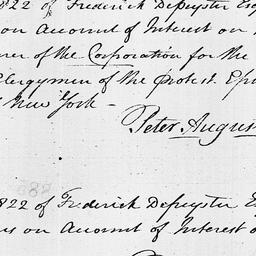 1822 of Frederick Depeyster Esq
on Account of Interest on
of the Corporation for the
Clergymen of the Protest. Epis
New York —
Peter Augus
822 of Frederick Depeyster E
on Account of Interest o